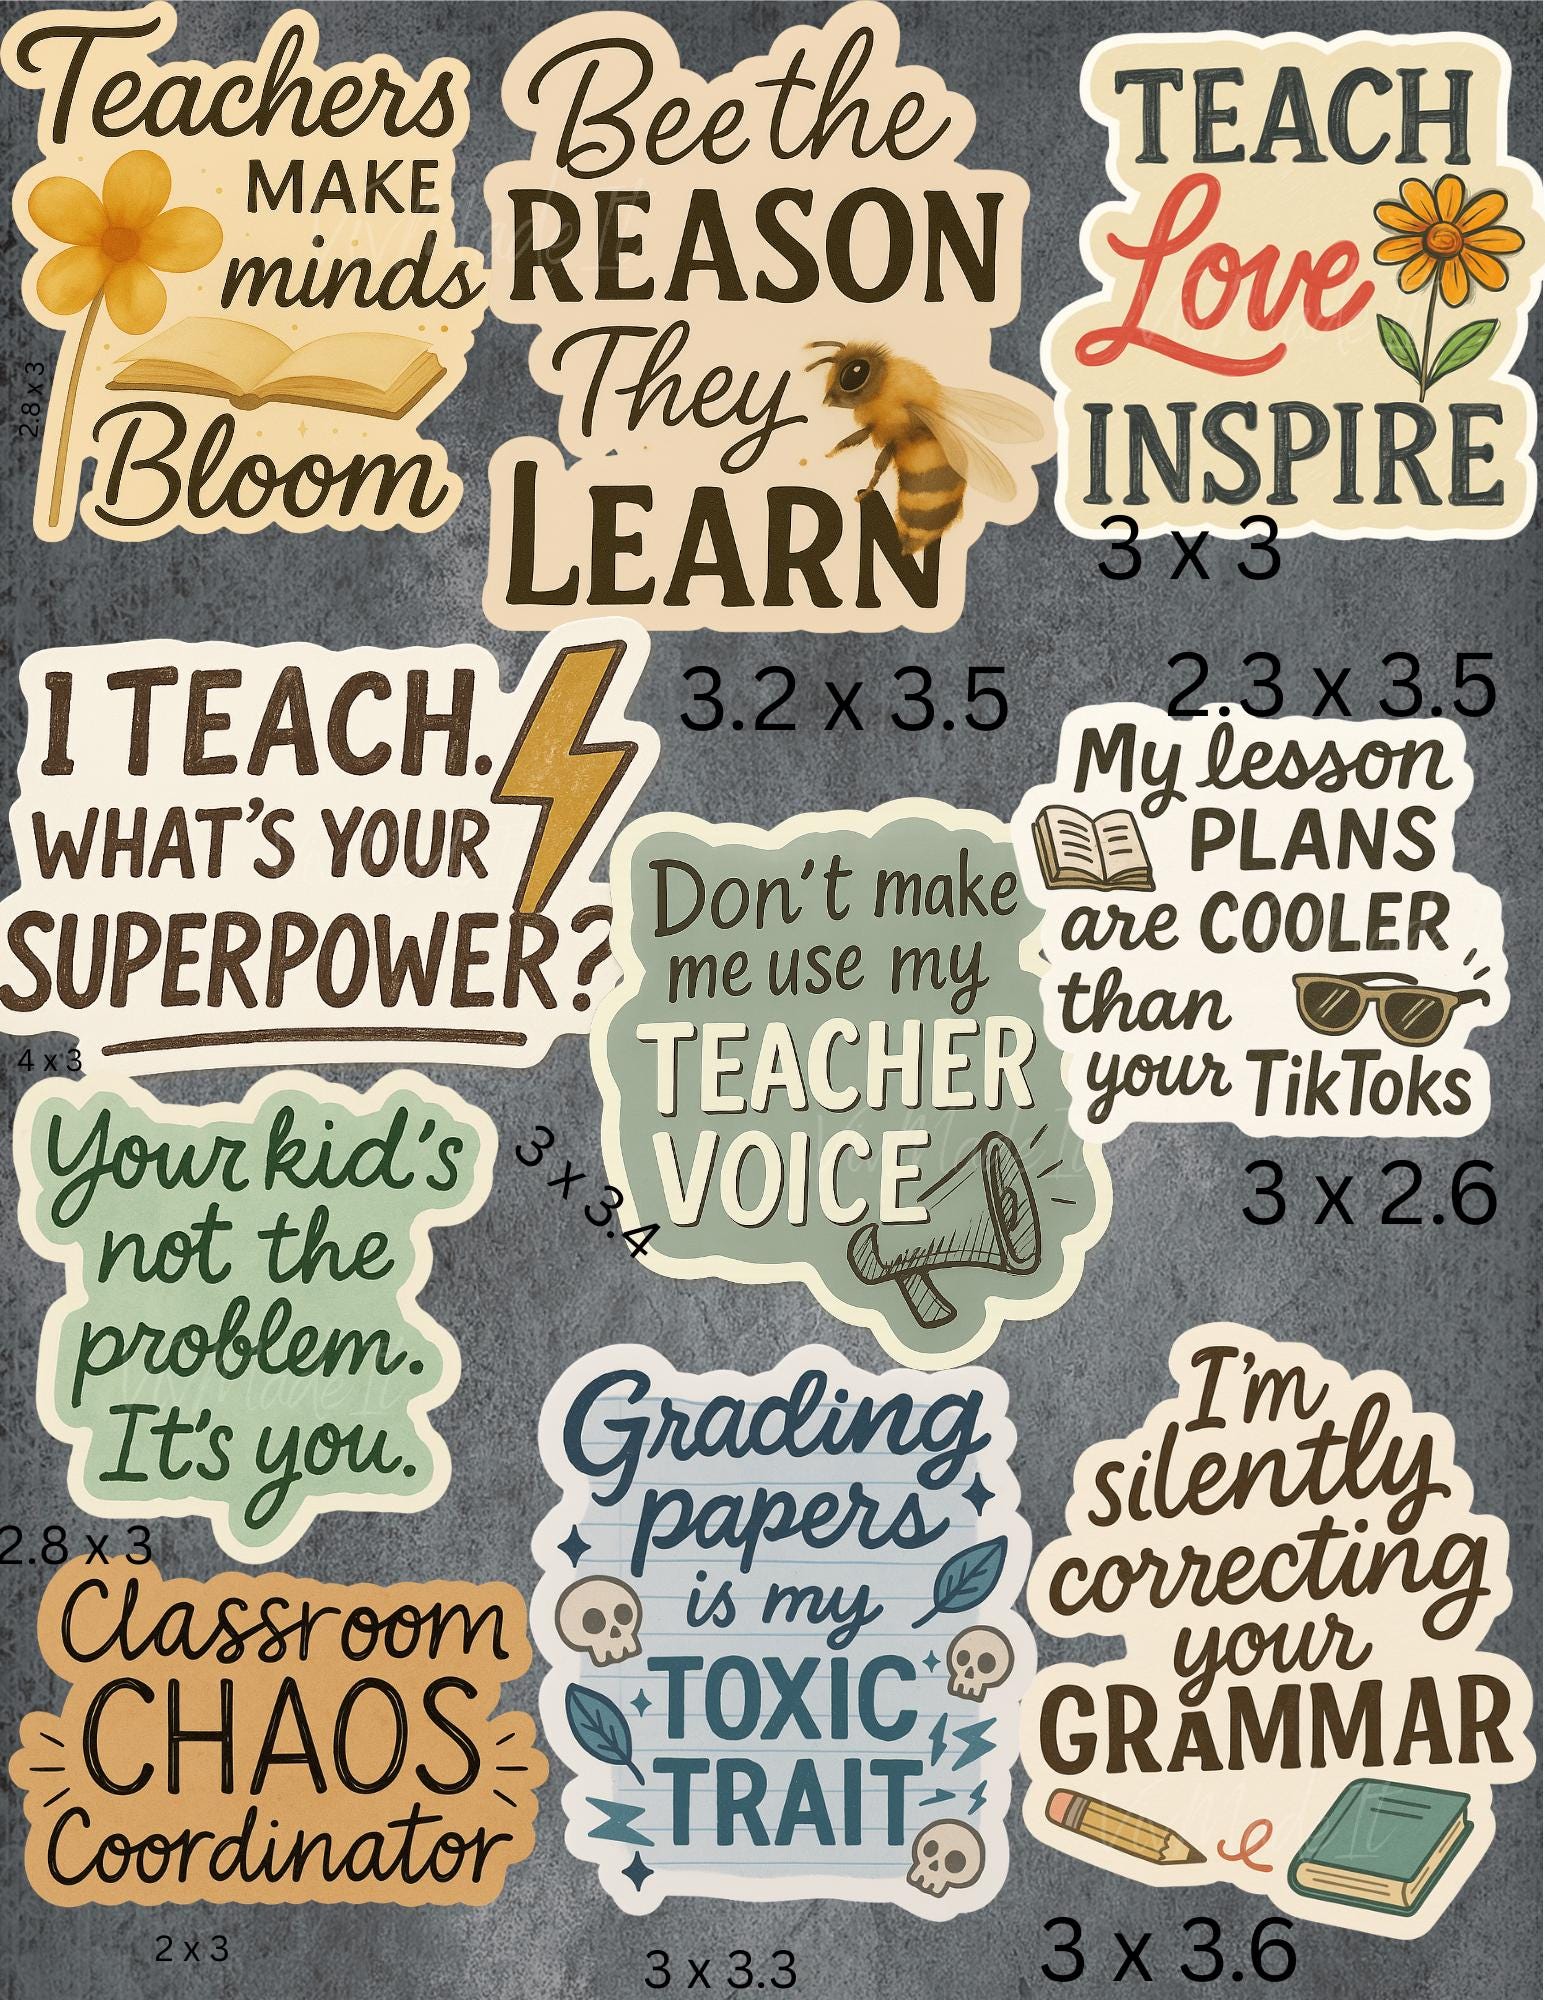 Teachers
MAKE
minds
Bloom
2.8 x 3
Bee the
REASON
They
LEARN
3.2 x 3.5
TEACH
Love
INSPIRE
3 x 3
I TEACH.
WHAT'S YOUR
SUPERPOWER?
4 x 3
Don't make
me use my
TEACHER
VOICE
3 x 3.4
2.3 x 3.5
My lesson
PLANS
are COOLER
than
your TikToks
3 x 2.6
Your kid's
not the
problem.
It's you.
2.8 x 3
Classroom
CHAOS
Coordinator
2 x 3
Grading
papers
is my
TOXIC
TRAIT
3 x 3.3
I'm
silently
correcting
your
GRAMMAR
3 x 3.6
ViviMade It